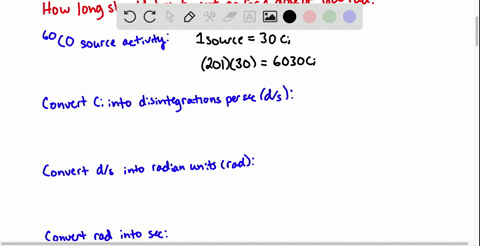 How long
⁶⁰CO source activity: 1 source = 30 Ci
(201)(30) = 6030 Ci
Convert Ci into disintegrations per sec (d/s):
Convert d/s into radian units (rad):
Convert rad into sec: